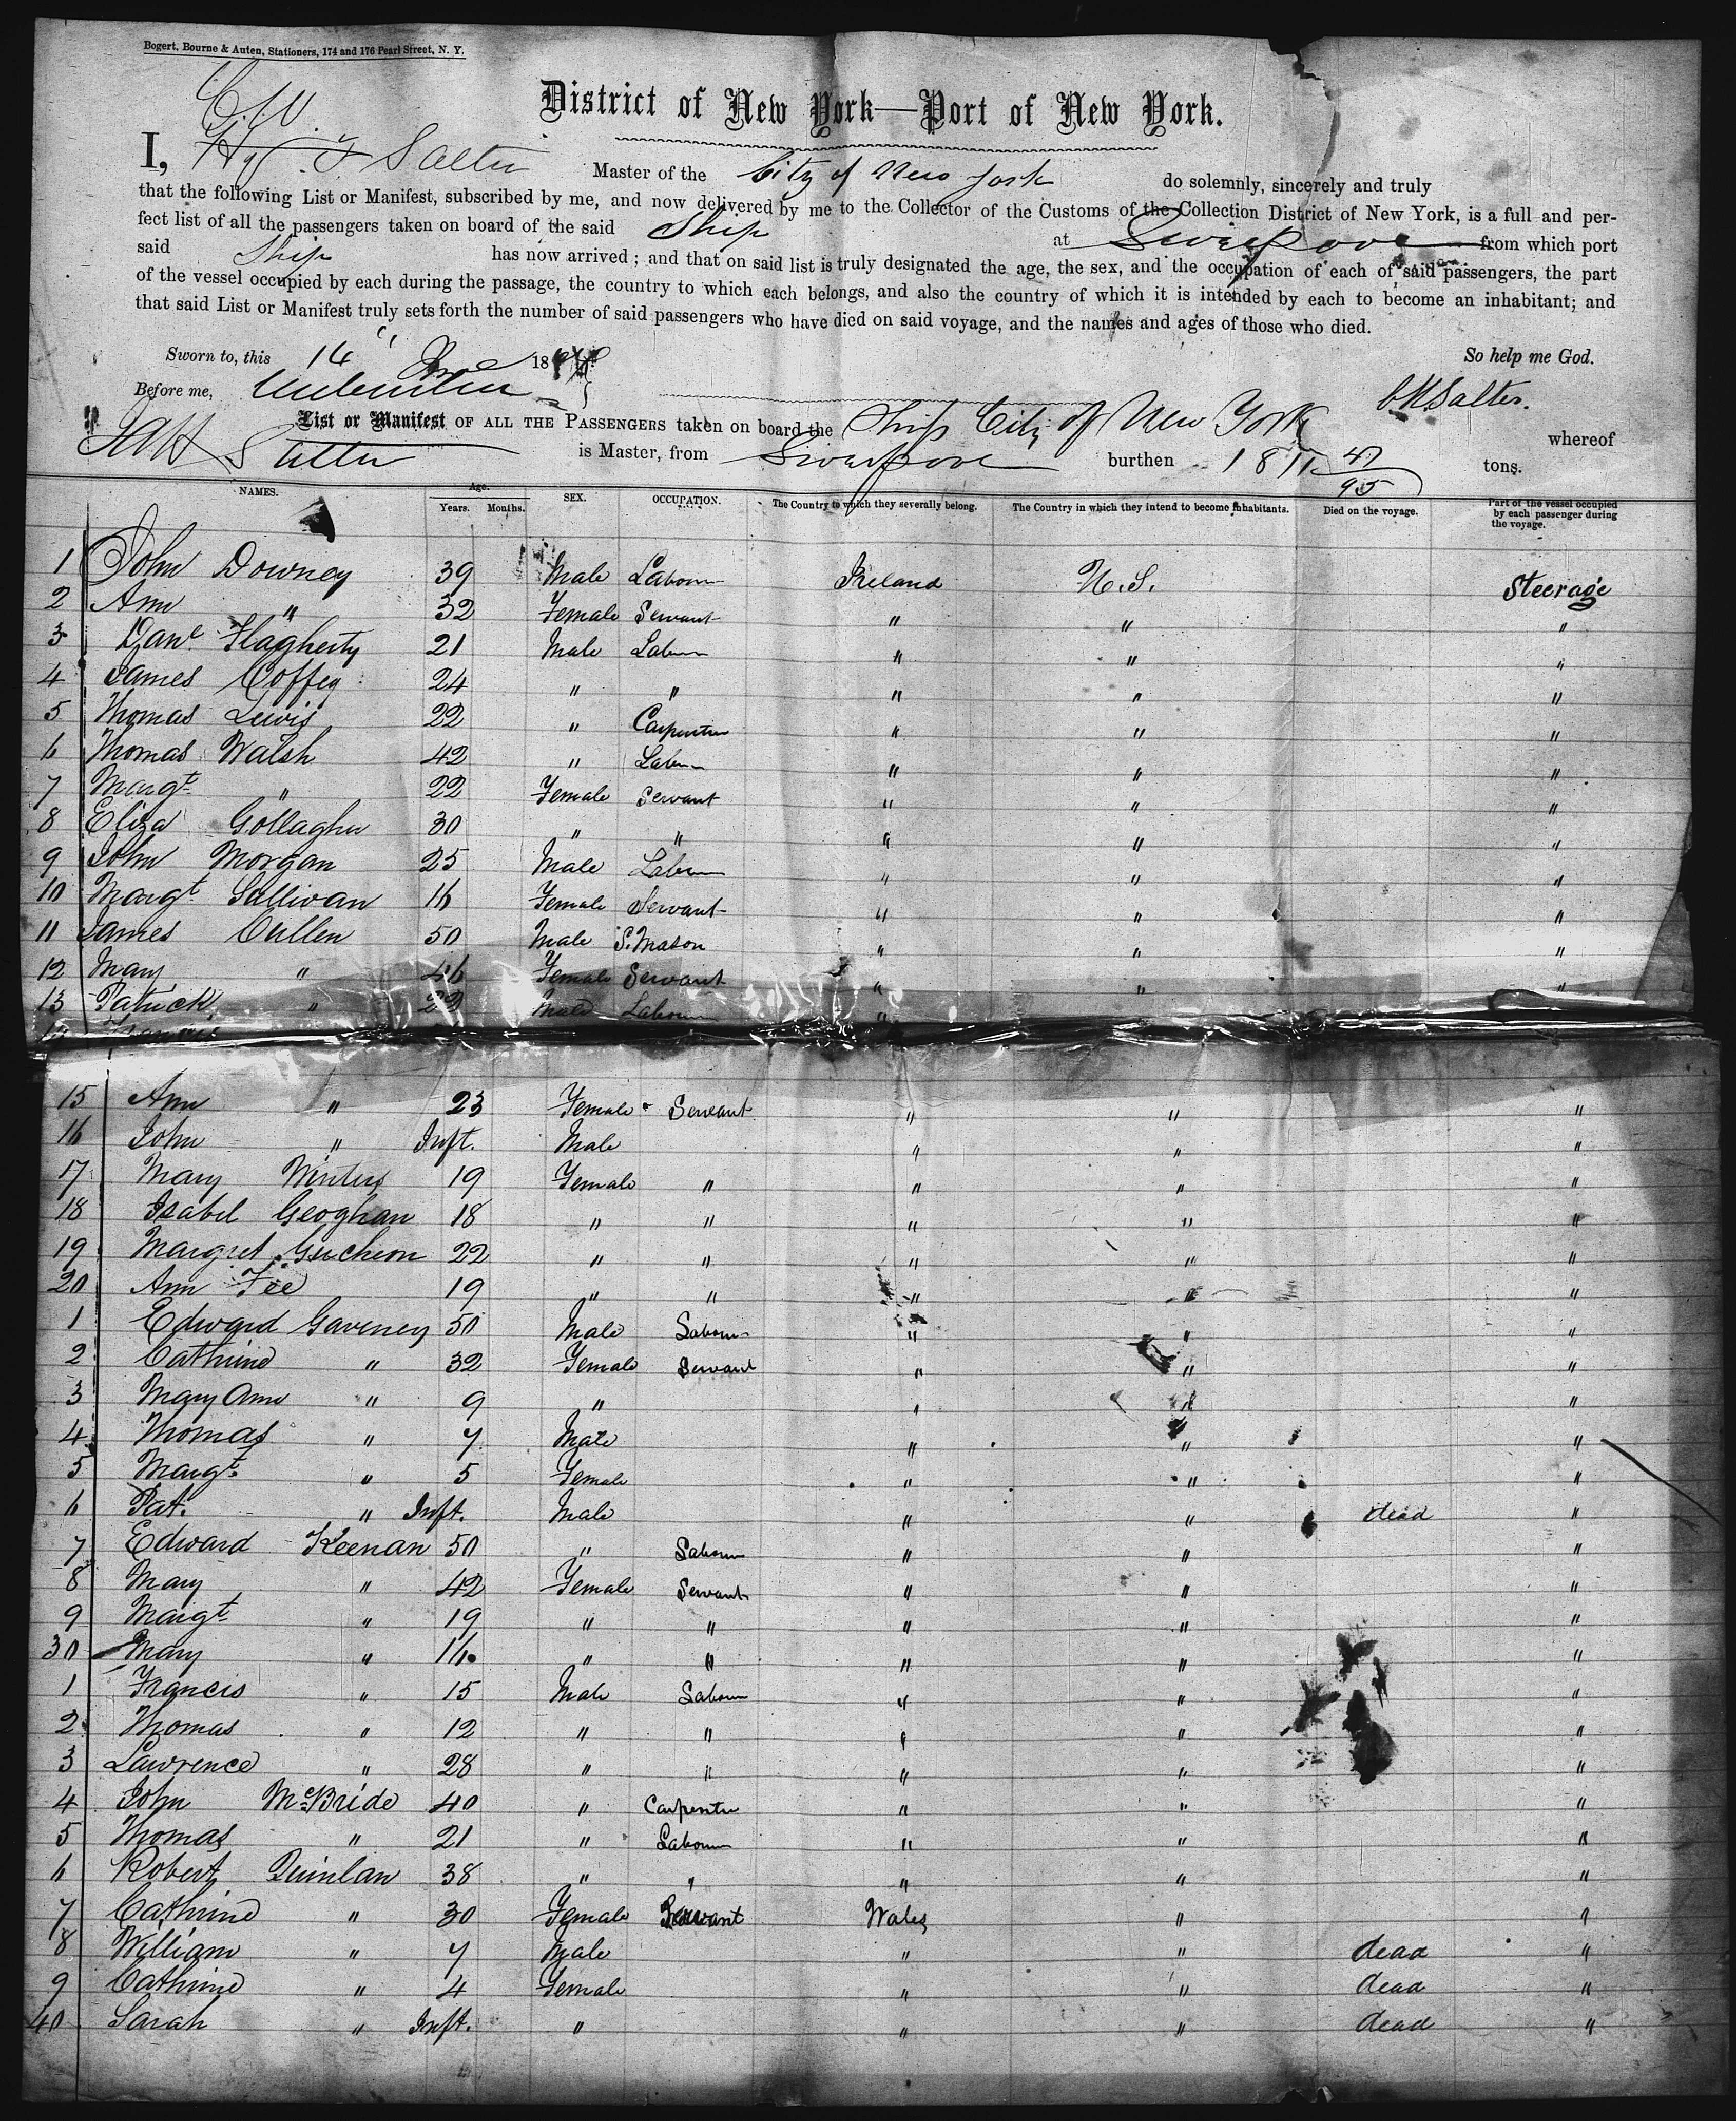 Bogert, Bourne & Auten, Stationers, 174 and 176 Pearl Street, N. Y.
District of New York—Port of New York.
I, Salter Master of the City of New York do solemnly, sincerely and truly
that the following List or Manifest, subscribed by me, and now delivered by me to the Collector of the Customs of the Collection District of New York, is a full and per-
fect list of all the passengers taken on board of the said Ship at Liverpool from which port
said Ship has now arrived; and that on said list is truly designated the age, the sex, and the occupation of each of said passengers, the part
of the vessel occupied by each during the passage, the country to which each belongs, and also the country of which it is intended by each to become an inhabitant; and
that said List or Manifest truly sets forth the number of said passengers who have died on said voyage, and the names and ages of those who died.
Sworn to, this 14 18 So help me God.
Before me, Salter.
List or Manifest OF ALL THE PASSENGERS taken on board the Ship City of New York whereof
Salter is Master, from Liverpool burthen tons.
NAMES. Age. Years. Months. SEX. OCCUPATION. The Country to which they severally belong. The Country in which they intend to become inhabitants. Died on the voyage. Part of the vessel occupied by each passenger during the voyage.
1 John Downey 39 Male Labourer Ireland U.S. Steerage
2 Ann " 32 Female Servant " " "
3 Danl. Flagherty 21 Male Labourer " " "
4 James Coffey 24 " " " " "
5 Thomas Lewis 22 " Carpenter " " "
6 Thomas Walsh 42 " Labourer " " "
7 Margt. " 22 Female Servant " " "
8 Eliza Gollagher 30 " " " " "
9 John Morgan 25 Male Labourer " " "
10 Margt Sullivan 16 Female Servant " " "
11 James Cullen 50 Male S. Mason " " "
12 Mary " 46 Female Servant " " "
13 Patrick " 22 Male Labourer "
15 Ann " 23 Female Servant " " "
16 John " Inft. Male " " "
17 Mary Winters 19 Female " " " "
18 Isabel Geoghan 18 " " " " "
19 Margret 22 " " " " "
20 Ann Fee 19 " " " " "
1 Edward Gaveney 50 Male Labourer " " "
2 Cathrine " 32 Female Servant " " "
3 Mary Ann " 9 " " " "
4 Thomas " 7 Male " " "
5 Margt. " 5 Female " " "
6 Pat. " Inft. Male " " dead "
7 Edward Keenan 50 " Labourer " " "
8 Mary " 42 Female Servant " " "
9 Margt " 19 " " " " "
30 Mary " 16 " " " " "
1 Francis " 15 Male Labourer " " "
2 Thomas " 12 " " " " "
3 Lawrence " 28 " " " " "
4 John McBride 40 " Carpenter " " "
5 Thomas " 21 " Labourer " " "
6 Robert Quinlan 38 " " " " "
7 Cathrine " 30 Female Servant Wales " "
8 William " 7 Male " " dead "
9 Cathrine " 4 Female " " dead "
40 Sarah " Inft. " " " dead "